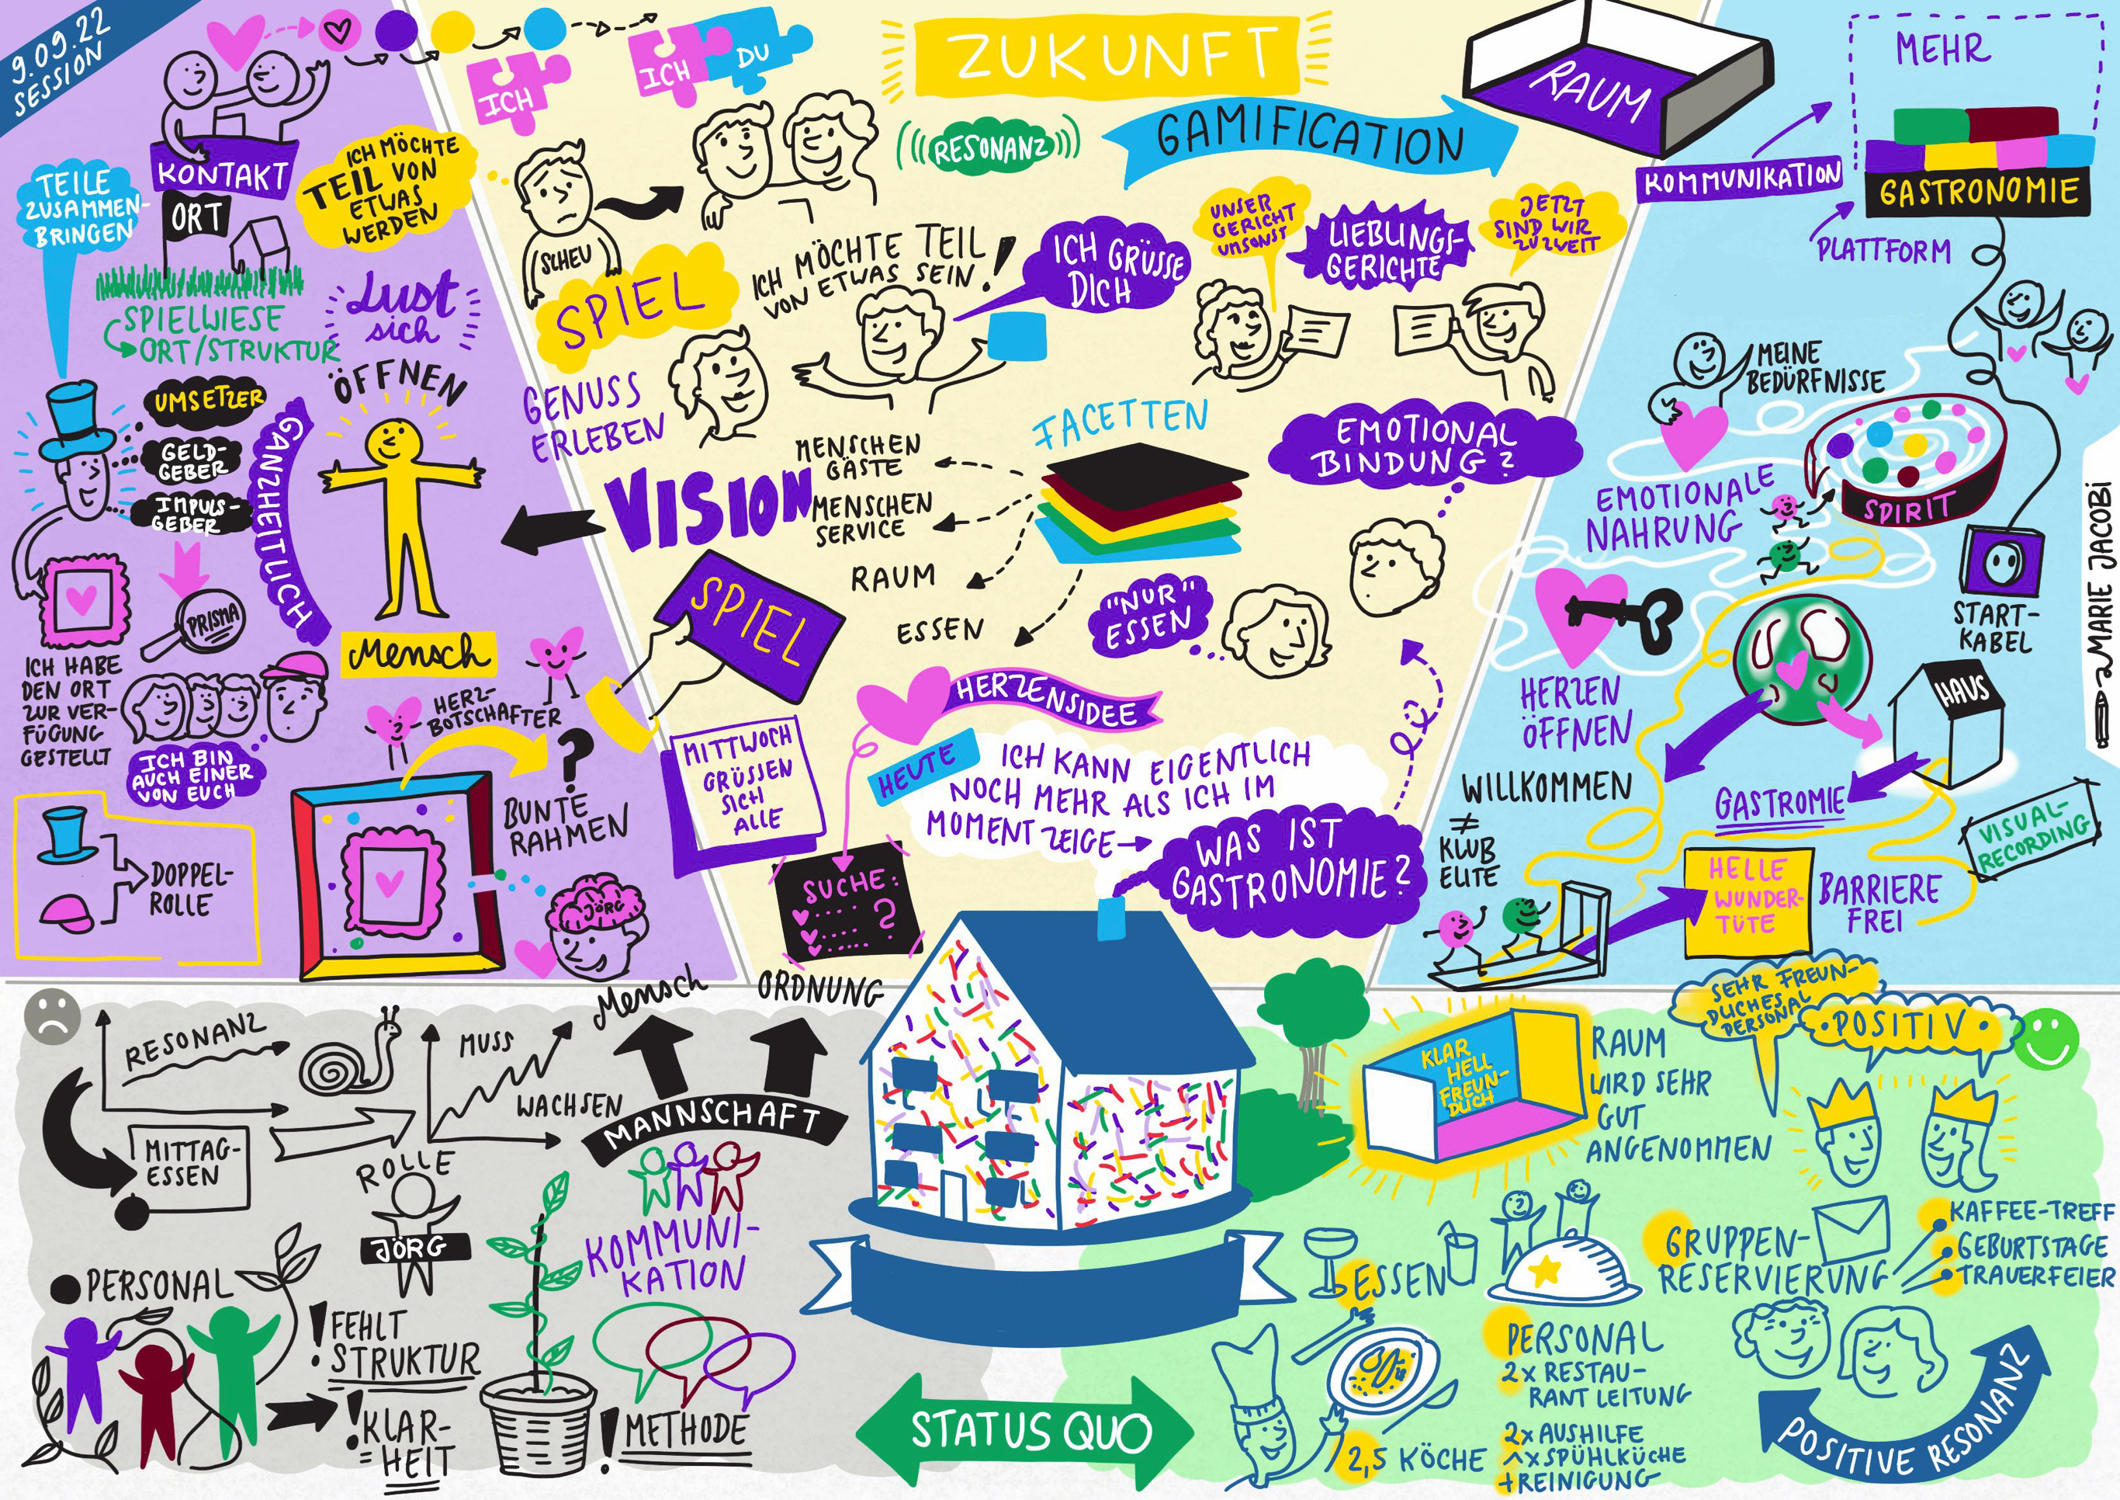 9.09.22
SESSION
KONTAKT
TEILE
ZUSAMMEN-
BRINGEN
ORT
ICH MÖCHTE
TEIL VON
ETWAS
WERDEN
SPIELWIESE
ORT/STRUKTUR
Lust
sich
ÖFFNEN
UMSETZER
GELD-
GEBER
IMPULS-
GEBER
GANZHEITLICH
PRISMA
Mensch
ICH HABE
DEN ORT
ZUR VER-
FÜGUNG
GESTELLT
ICH BIN
AUCH EINER
VON EUCH
HERZ-
BOTSCHAFTER
?
BUNTE
RAHMEN
DOPPEL-
ROLLE
JÖRG
ICH
ICH
DU
ZUKUNFT
RESONANZ
GAMIFICATION
RAUM
SCHEU
SPIEL
ICH MÖCHTE TEIL
VON ETWAS SEIN!
ICH GRÜSSE
DICH
UNSER
GERICHT
UMSONST
LIEBLINGS-
GERICHTE
JETZT
SIND WIR
ZU ZWEIT
GENUSS
ERLEBEN
VISION
FACETTEN
MENSCHEN
GÄSTE
MENSCHEN
SERVICE
RAUM
ESSEN
EMOTIONAL
BINDUNG?
"NUR"
ESSEN
SPIEL
HERZENSIDEE
MITTWOCH
GRÜSSEN
SICH
ALLE
HEUTE
ICH KANN EIGENTLICH
NOCH MEHR ALS ICH IM
MOMENT ZEIGE
WAS IST
GASTRONOMIE?
SUCHE:
?
MEHR
KOMMUNIKATION
GASTRONOMIE
PLATTFORM
MEINE
BEDÜRFNISSE
EMOTIONALE
NAHRUNG
SPIRIT
START-
KABEL
HERZEN
ÖFFNEN
HAUS
WILLKOMMEN
≠
KLUB
ELITE
GASTROMIE
HELLE
WUNDER-
TÜTE
BARRIERE
FREI
VISUAL-
RECORDING
MARIE JACOBI
RESONANZ
MITTAG-
ESSEN
MUSS
WACHSEN
Mensch
ORDNUNG
MANNSCHAFT
ROLLE
JÖRG
PERSONAL
! FEHLT
STRUKTUR
! KLAR-
HEIT
KOMMUNI-
KATION
! METHODE
STATUS QUO
KLAR
HELL
FREUN-
DLICH
RAUM
WIRD SEHR
GUT
ANGENOMMEN
SEHR FREUN-
DLICHES
PERSONAL
POSITIV
ESSEN
GRUPPEN-
RESERVIERUNG
KAFFEE-TREFF
GEBURTSTAGE
TRAUERFEIER
PERSONAL
2x RESTAU-
RANT LEITUNG
2x AUSHILFE
1x SPÜHLKÜCHE
+ REINIGUNG
2,5 KÖCHE
POSITIVE RESONANZ